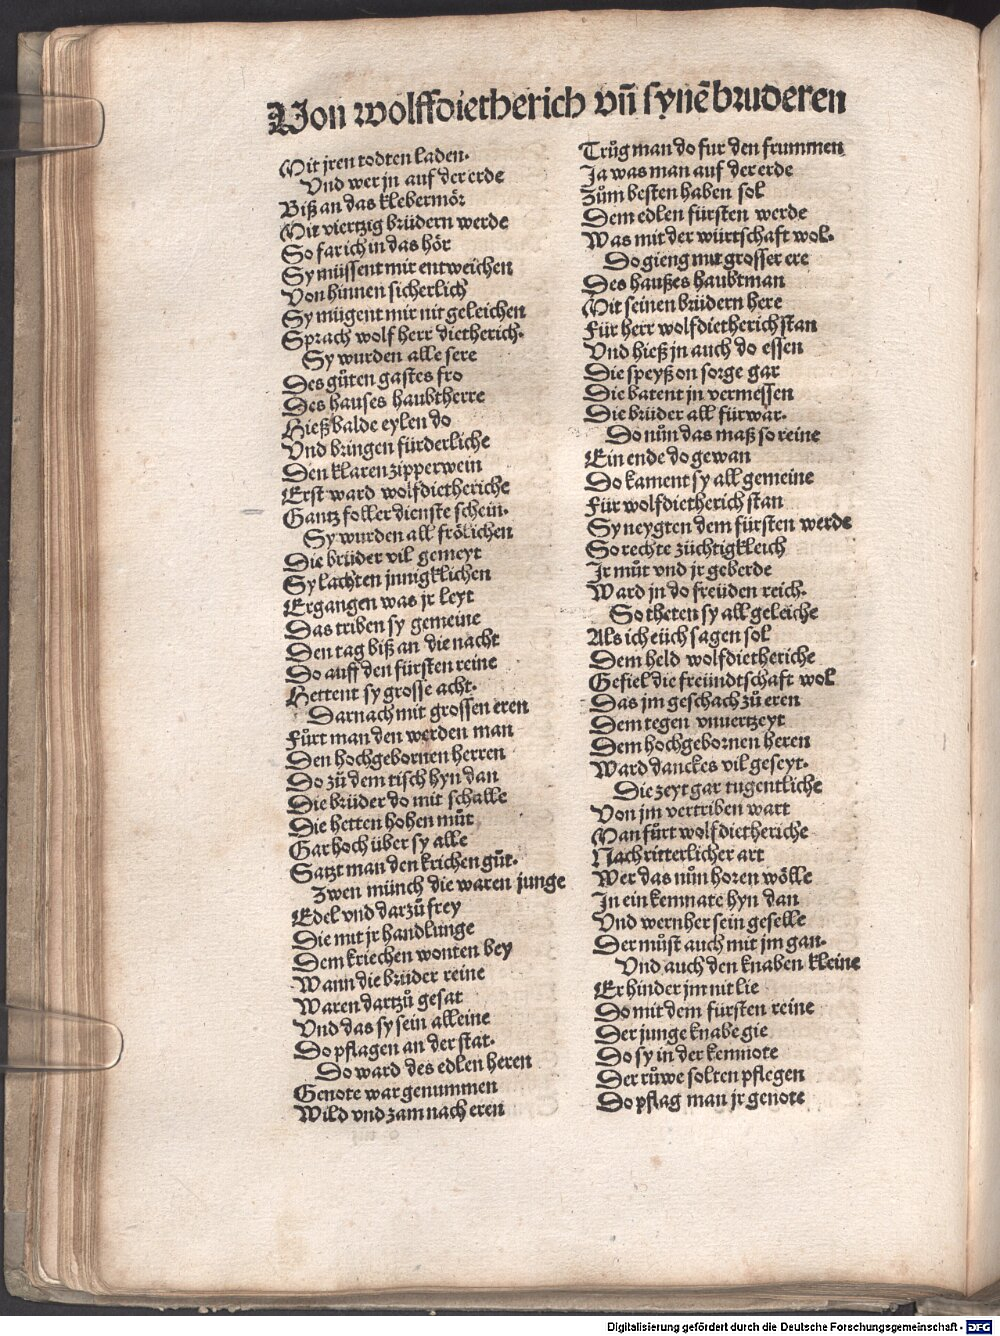 Von wolffdietherich vñ synē bruderen
Mit jren todten laden.
Vnd wer jn auf der erde
Biß an das klebermör
Mit viertzig brüdern werde
So far ich in das hör
Sy müssent mir entweichen
Von hinnen sicherlich
Sy mügent mir nit geleichen
Sprach wolf herr dietherich.
Sy wurden alle sere
Des gůten gastes fro
Des hauses haubtherre
Hieß balde eylen do
Vnd bringen fürderliche
Den klaren zipperwein
Erst ward wolfdietheriche
Gantz foller dienste schein.
Sy wurden all frölichen
Die brüder vil gemeyt
Sy lachten jnnigklichen
Ergangen was jr leyt
Das triben sy gemeine
Den tag biß an die nacht
Do auff den fürsten reine
Hettent sy grosse acht.
Darnach mit grossen eren
Fůrt man den werden man
Den hochgebornen herren
Do zů dem tisch hyn dan
Die brüder do mit schalle
Die hetten hohen můt
Gar hoch über sy alle
Satzt man den krichen gůt.
Zwen münch die waren junge
Edel vnd darzů frey
Die mit jr handlunge
Dem kriechen wonten bey
Wann die brüder reine
Waren dartzů gesat
Vnd das sy sein alleine
Do pflagen an der stat.
Do ward des edlen heren
Genote war genummen
Wild vnd zam nach eren
Trůg man do fur den frummen
Ja was man auf der erde
Zům besten haben sol
Dem edlen fürsten werde
Was mit der würtschaft wol.
Do gieng mit grosser ere
Des haußes haubtman
Mit seinen brüdern here
Für herr wolfdietherich stan
Vnd hieß jn auch do essen
Die speyß on sorge gar
Die batent jn vermessen
Die brüder all fürwar.
Do nůn das maß so reine
Ein ende do gewan
Do kament sy all gemeine
Für wolfdietherich stan
Sy neygten dem fürsten werde
So rechte züchtigkleich
Jr můt vnd jr geberde
Ward jn do freüden reich.
So theten sy all geleiche
Als ich eüch sagen sol
Dem held wolfdietheriche
Gefiel die freündtschaft wol
Das jm geschach zů eren
Dem tegen vnuertzeyt
Dem hochgebornen heren
Ward danckes vil geseyt.
Die zeyt gar tugentliche
Von jm vertriben wart
Man fůrt wolfdietheriche
Nach ritterlicher art
Wer das nůn horen wölle
In ein kemnate hyn dan
Vnd wernher sein geselle
Der můst auch mit jm gan.
Vnd auch den knaben kleine
Er hinder jm nit lie
Do mit dem fürsten reine
Der junge knabe gie
Do sy in der kemnote
Der růwe solten pflegen
Do pflag man jr genote
Digitalisierung gefördert durch die Deutsche Forschungsgemeinschaft - DFG